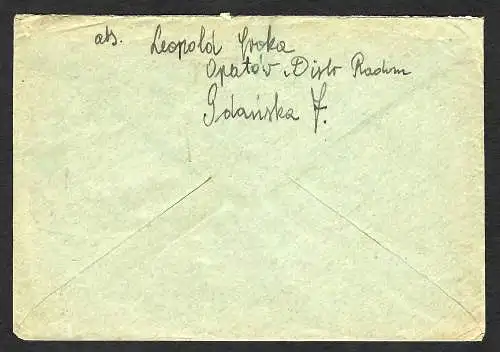 abs. Leopold Sroka
Opatów Distr Radom
Gdańska 7.